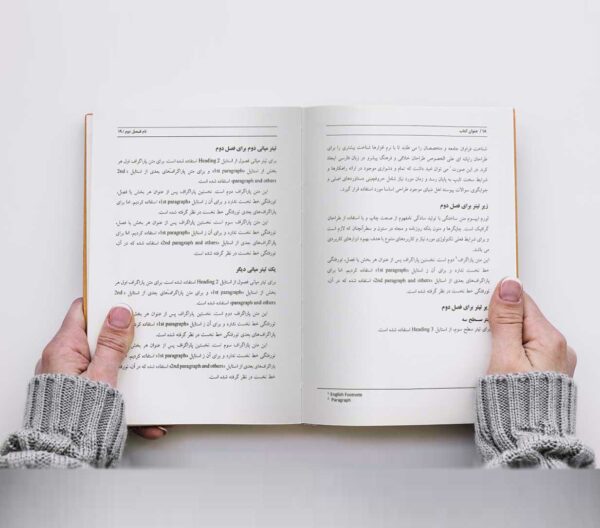 ۱۸ / عنوان کتاب
شناخت فراوان جامعه و متخصصان را می طلبد تا با نرم افزارها شناخت بیشتری را برای
طراحان رایانه ای علی الخصوص طراحان خلاقی و فرهنگ پیشرو در زبان فارسی ایجاد
کرد. در این صورت می توان امید داشت که تمام و دشواری موجود در ارائه راهکارها و
شرایط سخت تایپ به پایان رسد و زمان مورد نیاز شامل حروفچینی دستاوردهای اصلی و
جوابگوی سوالات پیوسته اهل دنیای موجود طراحی اساسا مورد استفاده قرار گیرد.
زیر تیتر برای فصل دوم
لورم ایپسوم متن ساختگی با تولید سادگی نامفهوم از صنعت چاپ و با استفاده از طراحان
گرافیک است. چاپگرها و متون بلکه روزنامه و مجله در ستون و سطرآنچنان که لازم است
و برای شرایط فعلی تکنولوژی مورد نیاز و کاربردهای متنوع با هدف بهبود ابزارهای کاربردی
می باشد.
این متن پاراگراف² دوم است. نخستین پاراگراف پس از عنوان هر بخش یا فصل، تورفتگی
خط نخست ندارد و برای آن از استایل «1st paragraph» استفاده کردیم. اما برای
پاراگراف‌های بعدی از استایل «2nd paragraph and others» استفاده شده که در آن،
تورفتگی خط نخست در نظر گرفته شده است.
زیر تیتر برای فصل دوم
تیتر سطح سه
برای تیتر سطح سوم، از استایل Heading 3 استفاده شده است.
¹ English Footnote
² Paragraph
نام فصل دوم / ۱۹
تیتر میانی دوم برای فصل دوم
برای تیتر میانی فصول از استایل Heading 2 استفاده شده است. برای متن پاراگراف اول هر
بخش از استایل «1st paragraph» و برای متن پاراگراف‌های بعدی از استایل «2nd
paragraph and others» استفاده شده است.
این متن پاراگراف دوم است. نخستین پاراگراف پس از عنوان هر بخش یا فصل،
تورفتگی خط نخست ندارد و برای آن از استایل «1st paragraph» استفاده کردیم. اما برای
پاراگراف‌های بعدی از استایل «2nd paragraph and others» استفاده شده که در آن،
تورفتگی خط نخست در نظر گرفته شده است.
این متن پاراگراف سوم است. نخستین پاراگراف پس از عنوان هر بخش یا فصل،
تورفتگی خط نخست ندارد و برای آن از استایل «1st paragraph» استفاده کردیم. اما برای
پاراگراف‌های بعدی از استایل «2nd paragraph and others» استفاده شده که در آن،
تورفتگی خط نخست در نظر گرفته شده است.
یک تیتر میانی دیگر
برای تیتر میانی فصول از استایل Heading 2 استفاده شده است. برای متن پاراگراف اول هر
بخش از استایل «1st paragraph» و برای متن پاراگراف‌های بعدی از استایل «2nd
paragraph and others» استفاده شده است.
این متن پاراگراف دوم است. نخستین پاراگراف پس از عنوان هر بخش یا فصل،
تورفتگی خط نخست ندارد و برای آن از استایل «1st paragraph» استفاده کردیم. اما
پاراگراف‌های بعدی از استایل «2nd paragraph and others» استفاده شده که در
خط نخست در نظر گرفته شده است.
این متن پاراگراف سوم است. نخستین پاراگراف پس از عنوان هر بخش یا فصل،
تورفتگی خط نخست ندارد و برای آن از استایل «1st paragraph» استفاده کردیم. اما برای
پاراگراف‌های بعدی از استایل «2nd paragraph and others» استفاده شده که در آن، تورفتگی
خط نخست در نظر گرفته شده است.